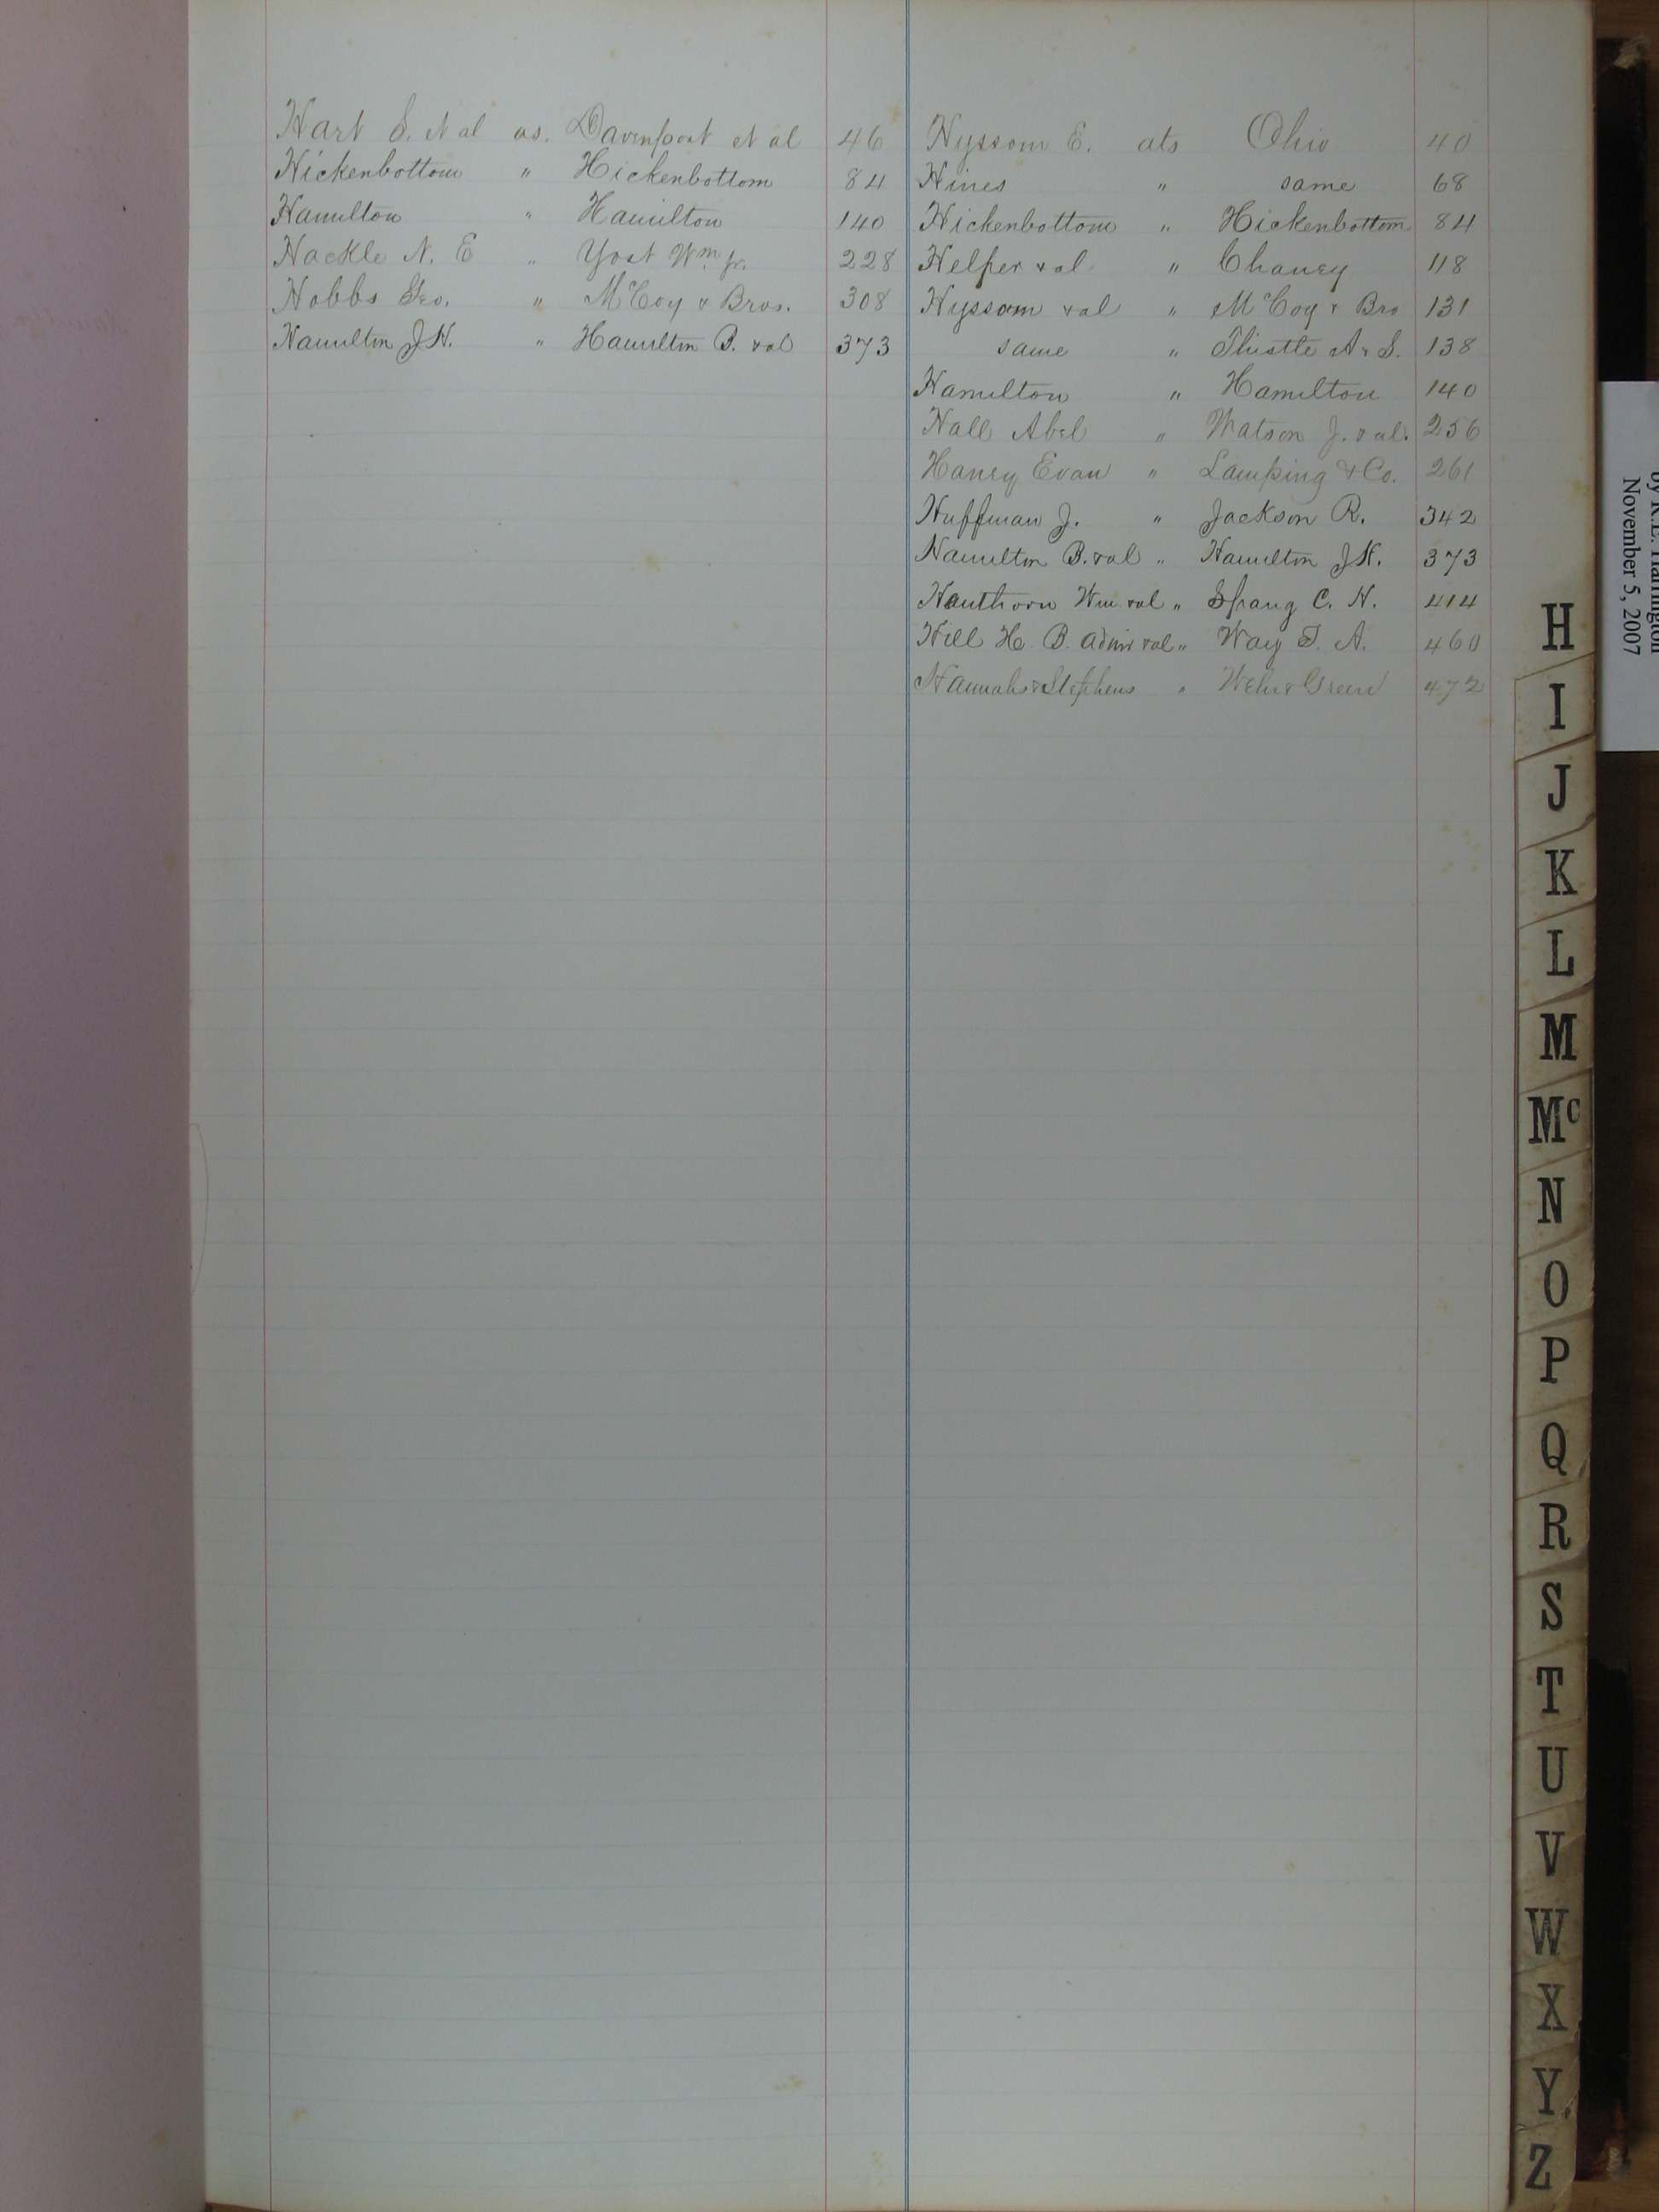 Hart S. et al vs. Davenport et al 46
Hickenbottom " Hickenbottom 84
Hamilton " Hamilton 140
Hackle N. E " Yost Wm jr. 228
Hobbs Geo. " McCoy & Bros. 308
Hamilton J H. " Hamilton B. & al 373
Hyssom E. ats Ohio 40
Hines " same 68
Hickenbottom " Hickenbottom 84
Helper & al " Chaney 118
Hyssom & al " McCoy & Bro 131
same " Thistle A & S. 138
Hamilton " Hamilton 140
Hall Abel " Watson J. & al. 256
Haney Evan " Lamping & Co. 261
Huffman J. " Jackson R. 342
Hamilton B. & al " Hamilton J H. 373
Hauthorn Wm & al " Spang C. H. 414
Hill H. B. admr & al " Way T. A. 460
Hannahs & Stephens " Wehr & Green 472
by R.E. Harrington
November 5, 2007
H
I
J
K
L
M
Mc
N
O
P
Q
R
S
T
U
V
W
X
Y
Z